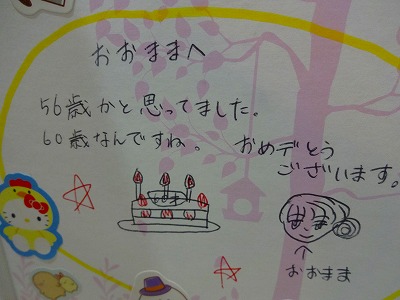 おおままへ
56歳かと思ってました。
60歳なんですね。
おめデとう
ございます。
おおまま